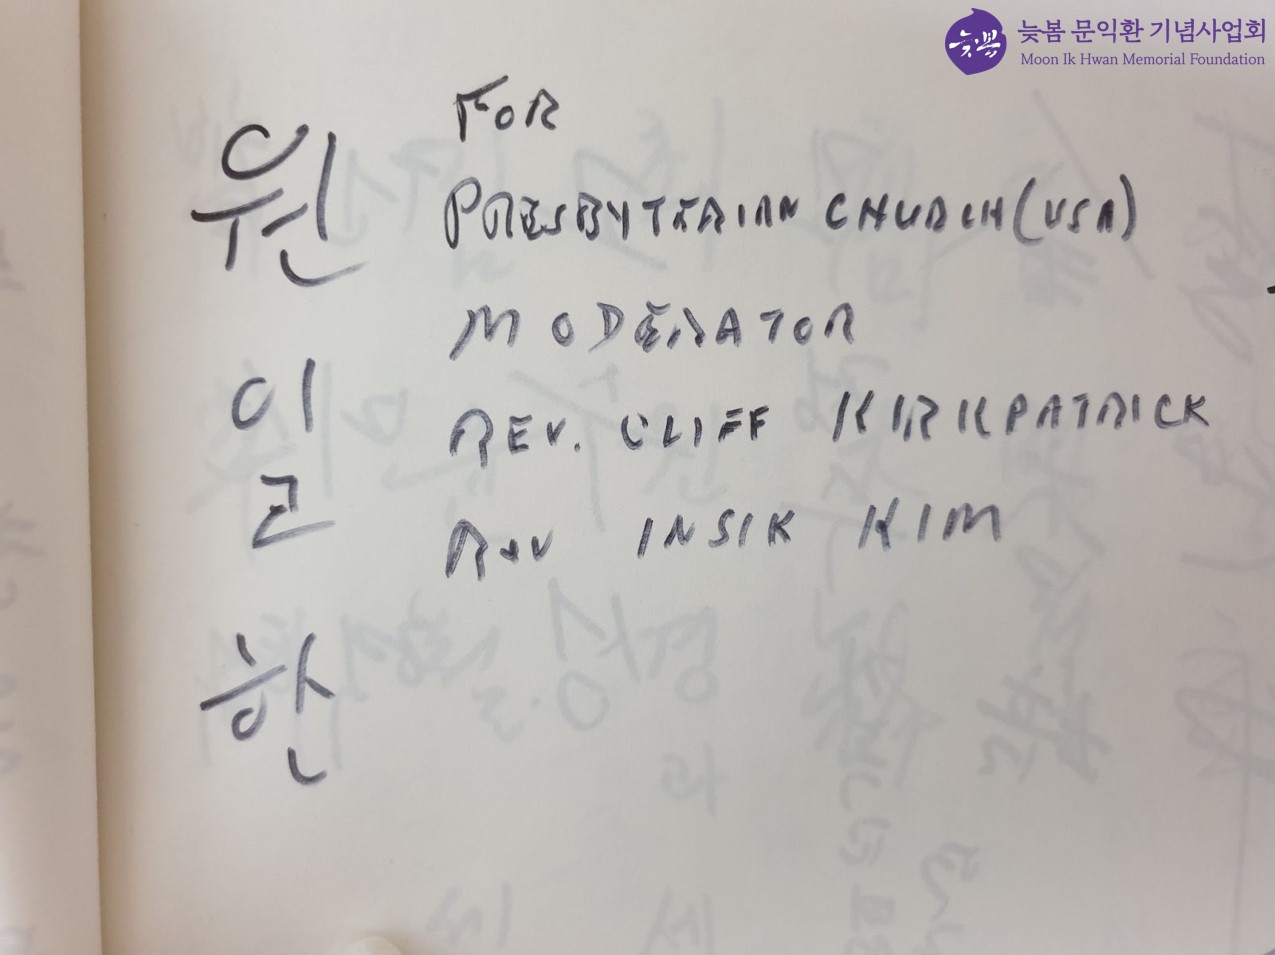 늦봄 문익환 기념사업회
Moon Ik Hwan Memorial Foundation
늦봄
원일한
FOR
PRESBYTERIAN CHURCH (USA)
MODERATOR
REV. CLIFF KIRKPATRICK
REV INSIK KIM